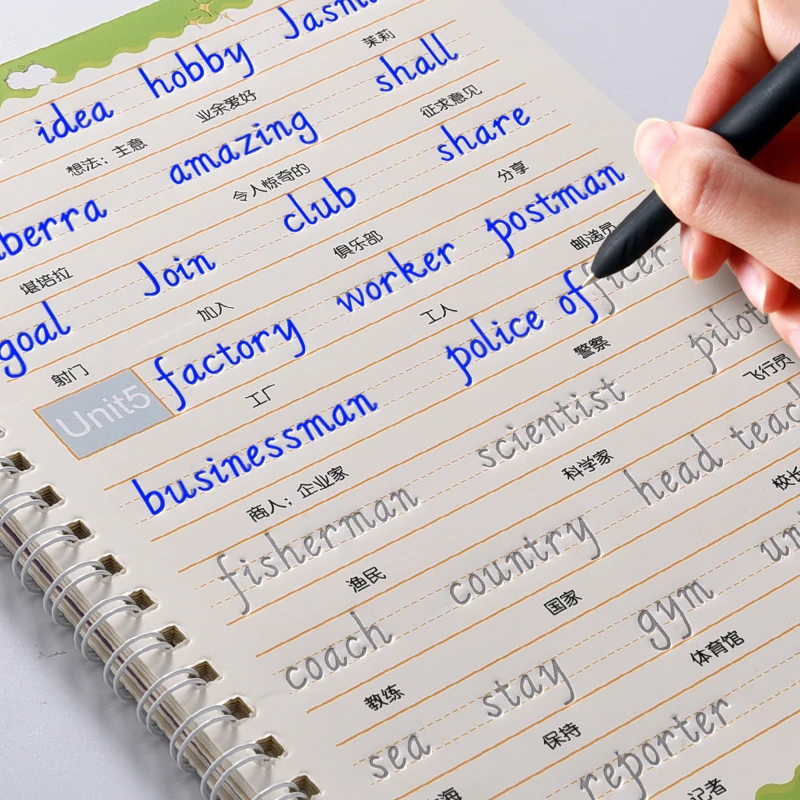 idea hobby
想法；主意 业余爱好 茉莉
amazing shall
令人惊奇的 征求意见
club share
堪培拉 俱乐部 分享
goal Join worker postman
射门 加入 工人 邮递员
Unit5 factory police officer
工厂 警察
businessman scientist pilot
商人；企业家 科学家 飞行员
fisherman head
渔民
coach country
教练 国家
sea stay gym
保持 体育馆
reporter
记者